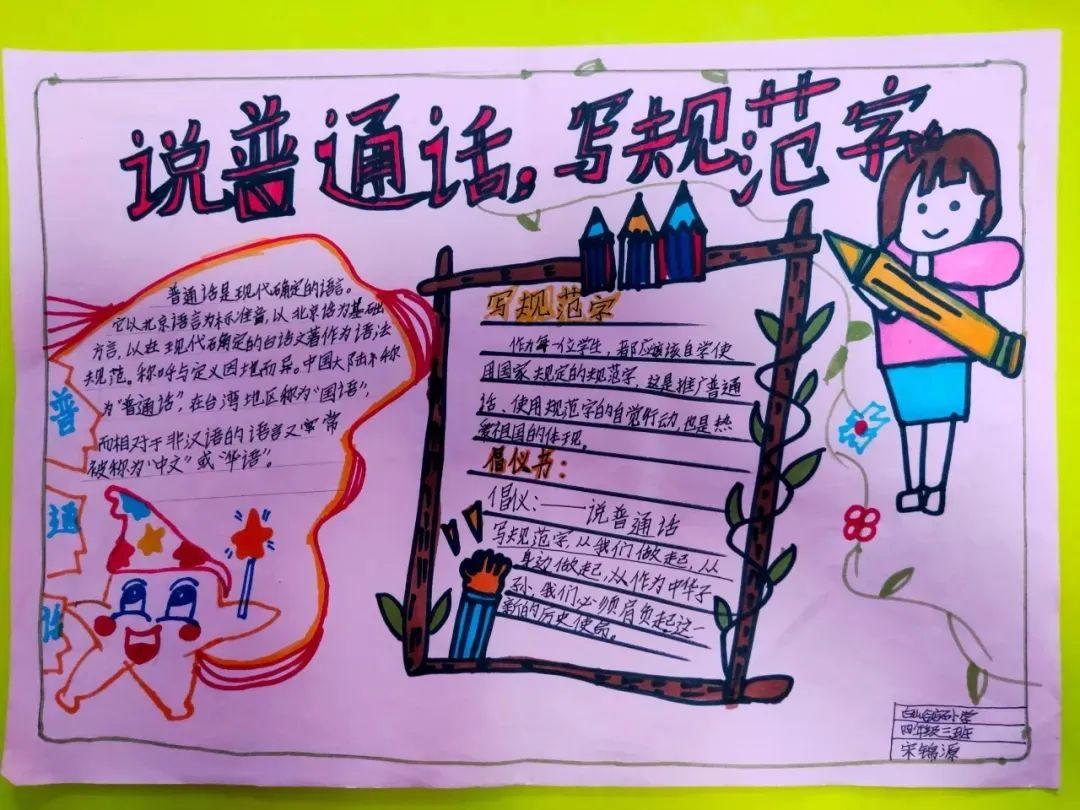 说普通话,写规范字
普
通
话
普通话是现代确定的语言。
它以北京语言为标准音,以北京话为基础
方言,以赴现代确定的白话文著作为语法
规范。称呼与定义因地而异。中国大陆称
为“普通话”,在台湾地区称为“国语”,
而相对于非汉语的语言又常常
被称为“中文”或“华语”。
写规范字
作为每一位学生,都应该自学使
用国家规定的规范字,这是推广普通
话、使用规范字的自觉行动,也是热
爱祖国的体现。
倡仪书:
倡仪:——说普通话
写规范字,从我们做起,从
身边做起,从作为中华子
孙,我们必须肩负起这一
新的历史使命。
小学
四年级三班
宋锦源